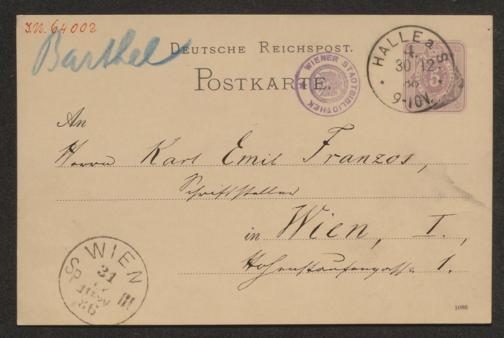 I.N. 64002
Barthel
DEUTSCHE REICHSPOST.
POSTKARTE.
WIENER STADTBIBLIOTHEK
HALLE a. S.
4.
30 12
86
9-10V.
5
An
Herrn Karl Emil Franzos,
Schriftsteller
in Wien, I.,
Hohenstaufengasse 1.
WIEN
31
III
86
1086